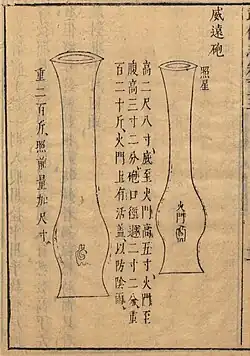 威遠砲
照星
火門
高二尺八寸底至火門高五寸火門至
腹高三寸二分砲口徑過二寸二分重
百二十斤火門上有活盖以防陰雨
重二百斤照前量加尺寸